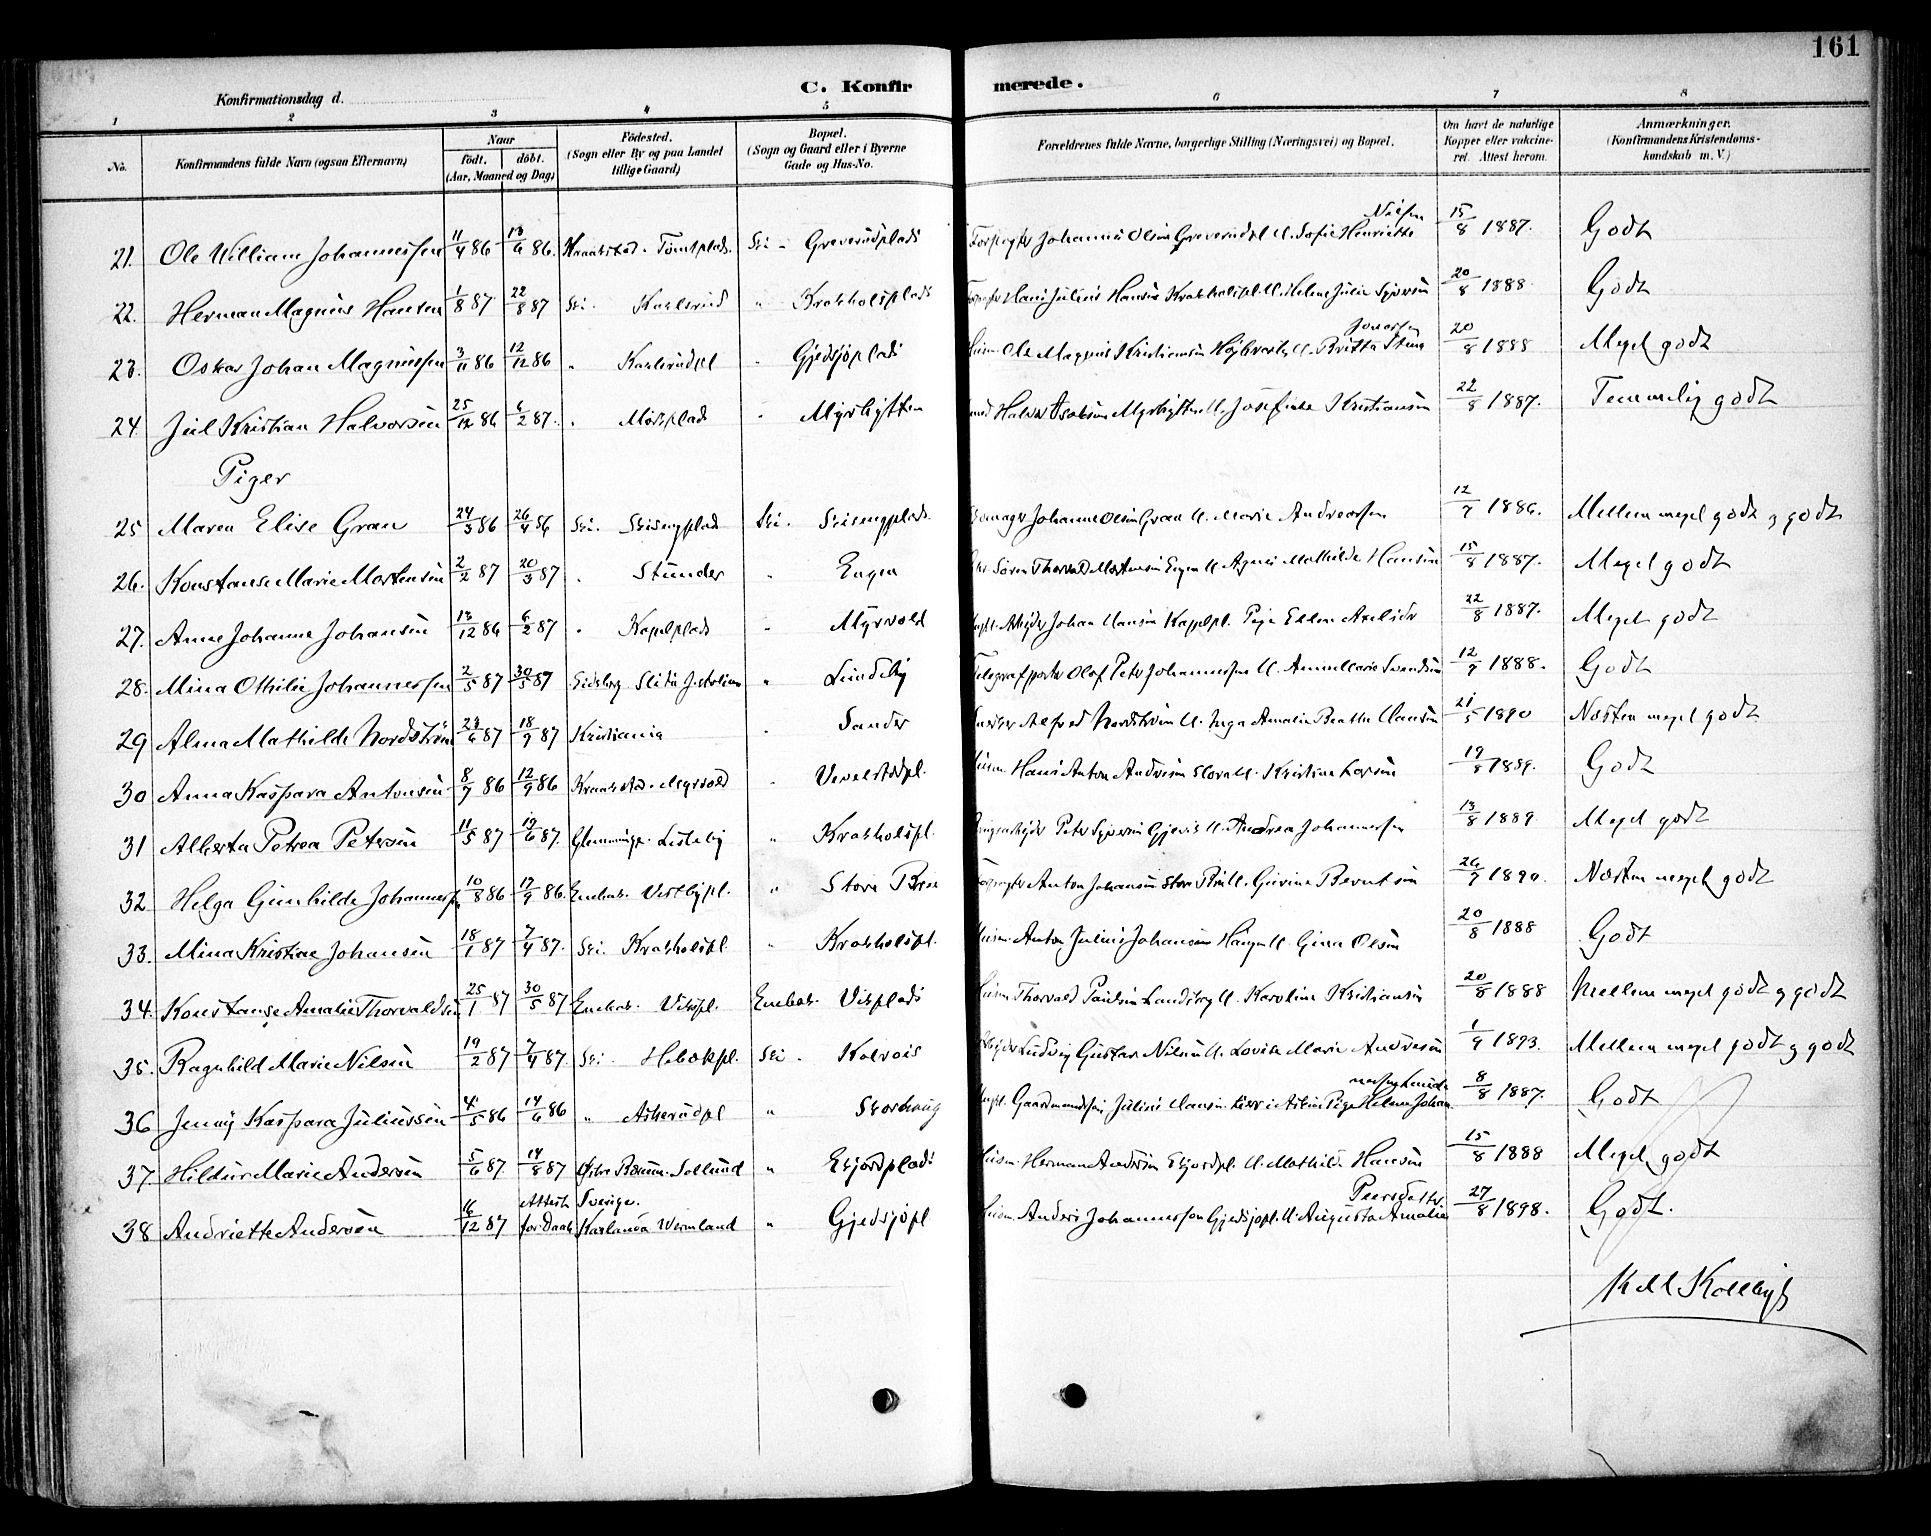 161
C. Konfirmerede.
Konfirmationsdag d.
1 2 3 4 5 6 7 8
No. Konfirmandens fulde Navn (ogsaa Efternavn) Naar født. døbt. (Aar, Maaned og Dag) Fødested. (Sogn eller By og paa Landet tillige Gaard) Bopæl. (Sogn og Gaard eller i Byerne Gade og Hus-No. Forældrenes fulde Navne, borgerlige Stilling (Næringsvei) og Bopæl. Om havt de naturlige Kopper eller vaccineret. Attest herom. Anmærkninger. (Konfirmandens Kristendomskundskab m. V.)
21. Ole William Johannessen 11/4 86 13/6 86. Kraakstad - Tomtplads. Ski - Greverudplads Johannes Olsen Greverudpl. Sofie Henriette Nilsen 15/8 1887. Godt
22. Herman Magnus Hansen 1/8 87 22/8 87 Ski. Karlsrud " Krakholsplads Hans Julius Hansen Krakholspl. Helene Julie 20/8 1888 Godt
23. Oskar Johan Magnussen 3/11 86 12/12 86 " Karlsrudpl " Gjedsjøplads Ole Magnus Kristiansen Britta Stina Jonassen 20/8 1888 Meget godt
24 Juel Kristian Halvorsen 25/12 86 6/2 87. " Mosplads " Myrhytten Halvor Isaksen Myrhytten Josefine Kristiansen 22/8 1887. Temmelig godt
Piger
25 Maren Elise Gran 24/3 86 26/4 86 Ski. Skisengplad Ski. Skisengplads. Johannes Olsen Gran Marie Andreassen 12/7 1886. Mellem meget godt og godt
26. Konstanse Marie Mortensen 2/2 87 20/3 87 " Stunder " Engen Søren Thorvald Mortensen Engen Agnes Mathilde Hansen 15/8 1887. Meget godt
27. Anne Johanne Johansen 13/12 86 6/2 87 " Kapelplads " Myrvold Johan Hansen Kappelpl. Pige Ellen Axelsdr 22/8 1887. Meget godt
28. Mina Othilie Johannessen 2/5 87 30/5 87 Eidsberg Slitu " Lundeby Olaf Peter Johannessen Anne Marie Svendsen 12/7 1888. Godt
29 Alma Mathilde Nordstrøm 24/6 87 18/9 87 Kristiania " Sander Alfred Nordstrøm Inga Amalie Beathe Hansen 21/5 1890 Næsten meget godt
30 Anna Kaspara Antonsen 8/7 86 12/9 86 Kraakstad - Myrvold " Vevelstadpl. Husm. Hans Anton Andersen Kristine Larsen 19/8 1889. Godt
31 Alberta Petrea Petersen 11/5 87 19/6 87. Glemminge. Lisleby " Krakholspl. Peter Syversen Gjevik Andrea Johannessen 13/8 1889 Meget godt
32. Helga Gunhilde Johannessen 10/8 86 17/9 86. Enebak. Vestbypl. " Store Bru Anton Johansen Store Bru Gurine Berntsen 26/7 1890. Næsten meget godt
33. Mina Kristine Johansen 18/1 87 7/4 87. Ski. Krakholspl. " Krakholspl. Husm. Anton Julius Johansen Haugen Gina Olsen 20/8 1888 Godt
34. Konstanse Amalie Thorvaldsen 25/1 87 30/5 87 Enebak. Vikspl. Enebak. Visplads Husm. Thorvald Paulsen Landsby Karoline Kristiansen 20/8 1888 Mellem meget godt og godt
35. Ragnhild Marie Nilsen 19/2 87 7/4 87. Ski. Hebekpl. Ski. Kolvois Ludvig Gustav Nilsen Lovise Marie Andresen 1/9 1893. Mellem meget godt og godt
36 Jenny Kaspara Juliussen 4/5 86 14/6 86 " Askerudpl " Skorhaug Ungk. Gaardmandssøn Julius Hansen Pige Helene Johannessen 8/8 1887. Godt
37 Hildur Marie Andersen 5/6 87 14/8 87 Østre Bærum. Sollund " Eikjordplads Husm. Herman Andersen Mathilde Hansen 15/8 1888 Meget godt
38 Andriette Andersen 16/12 87 Attest for Daab Sverige. Karlanda Vermland " Gjedsjøpl Husm. Anders Johannessen Gjedsjøpl. Augusta Amalie Peersdatter 27/8 1898. Godt.